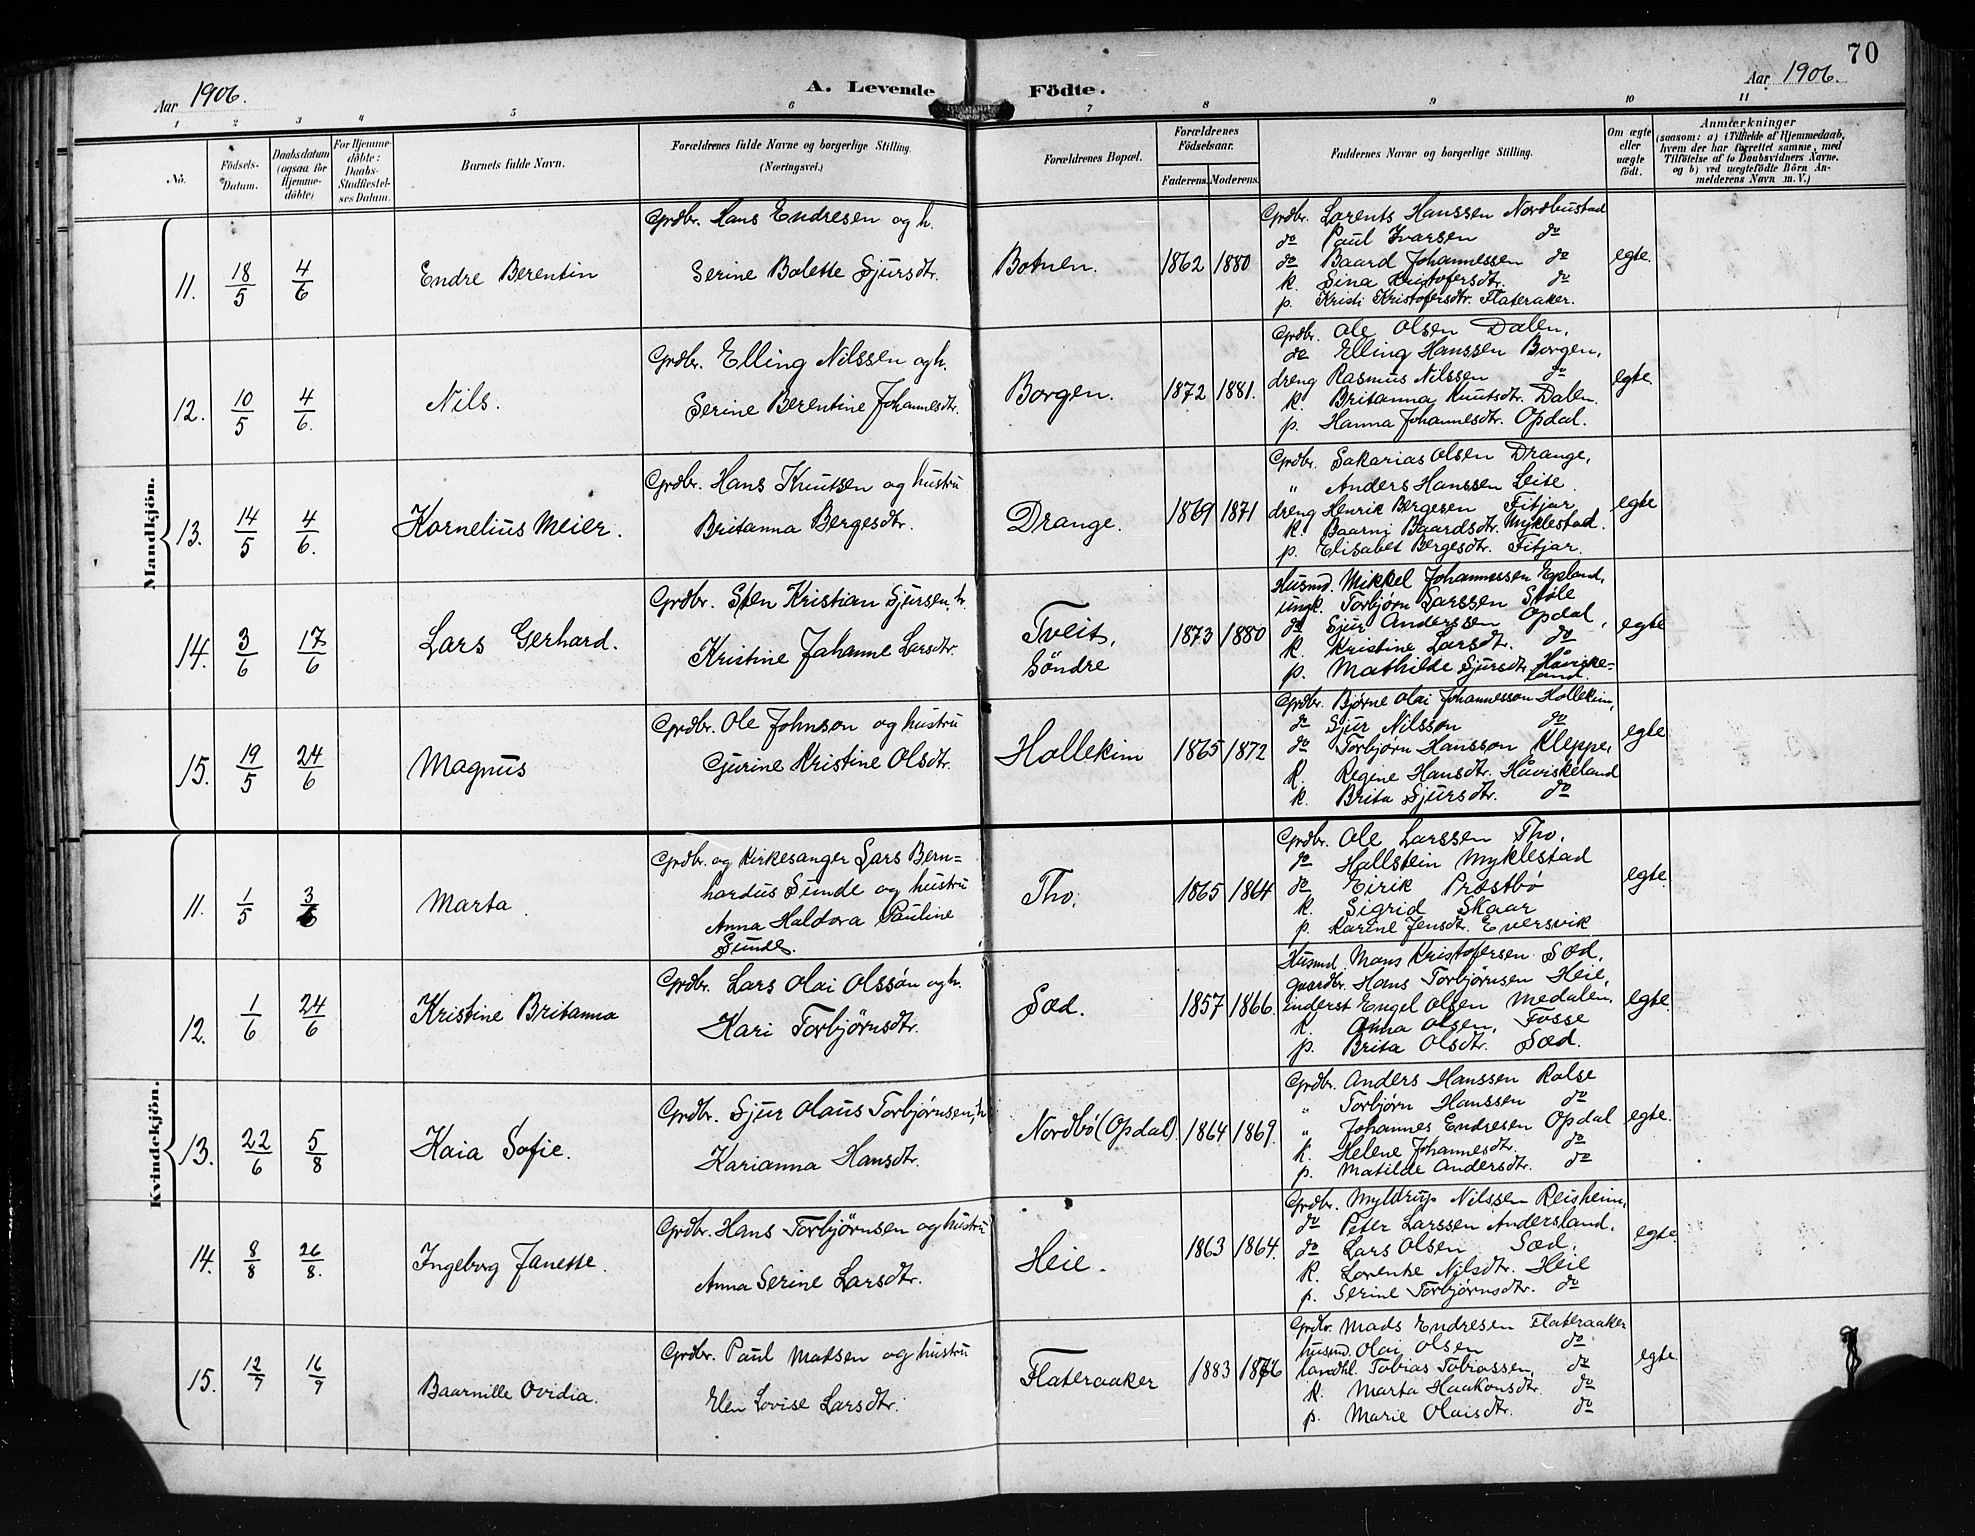 70
Aar 1906.
A. Levende Födte.
Aar 1906.
1 2 3 4 5 6 7 8 9 10 11
Nö.
Födsels-Datum.
Daabsdatum (ogsaa for Hjemme-döbte)
For Hjemme-döbte: Daabs-Stadfæstel-ses Datum.
Barnets fulde Navn.
Forældrenes fulde Navne og borgerlige Stilling. (Næringsvei.)
Forældrenes Bopæl.
Forældrenes Födselsaar.
Faderens. Moderens.
Faddernes Navne og borgerlige Stilling.
Om ægte eller uægte født.
Anmærkninger
(saasom: a) i Tilfælde af Hjemmedaab,
hvem der har forrettet samme, med
Tilföielse af to Daabsvidners Navne,
og b) ved uægtefödte Börn An-
melderens Navn m. V.)
Mandkjön.
11. 18/5 4/6 Endre Berentin
Grdbr. Hans Endresen og h.
Serine Bolette Sjursdtr.
Botnen. 1862 1880
Grdbr. Lorents Hanssen Nordhustad
do Paul Ivarsen do
do Baard Johannessen do
k. Sina Kristofersdtr. do
p. Kristi Kristofersdtr. Flateraker.
egte.
12. 10/5 4/6. Nils.
Grdbr. Elling Nilssen og h.
Serine Berentine Johannesdtr.
Borgen. 1872 1881.
Grdbr. Ole Olsen Dalen,
do Elling Hanssen Borgen,
dreng Rasmus Nilssen do
k. Britanna Knutsdtr. Dalen.
p. Hanna Johannesdtr. Opdal.
egte.
13. 14/5 4/6. Kornelius Meier.
Grdbr. Hans Knutsen og hustru
Britanna Bergesdtr.
Drange. 1869 1871
Grdbr. Sakarias Olsen Drange,
" Anders Hanssen Leite.
dreng Henrik Bergesen Fitjar
k. Baarni Baardsdtr. Myklestad.
p. Elisabet Bergesdtr. Fitjar.
egte
14. 3/6 17/6 Lars Gerhard.
Grdbr. Sten Kristian Sjursen, h.
Kristine Johanne Larsdtr.
Tveit, Söndre 1873 1880
Husmd. Mikkel Johannessen Epland,
ungk. Torbjørn Larssen Støle
do Sjur Anderssen Opdal,
k. Kristine Larsdtr. do
p. Mathilde Sjursdtr. Håviske-
land.
egte
15. 19/5 24/6 Magnus
Grdbr. Ole Johnson og hustru
Gurine Kristine Olsdtr.
Hollekim 1865 1872
Grdbr. Bjørne Olai Johannesson Hollekim,
do Sjur Nilsson do
do Torbjørn Hansson Kleppe,
k. Regine Hansdtr. Håviskeland
k. Brita Sjursdtr. do
egte
Kvindekjön.
11. 1/5 3/6 Marta.
Grdbr. og Kirkesanger Lars Bern=
hardus Sunde og hustru
Anna Haldora Pauline
Sunde.
Tho. 1865 1864
Grdbr. Ole Larssen Tho,
do Hallstein Myklestad
do Eirik Præstbö
k. Sigrid Skaar
p. Karine Jensdtr. Eversvik
egte.
12. 1/6 24/6 Kristine Britanna
Grdbr. Lars Olai Olssøn og h.
Kari Torbjørnsdtr.
Sæd. 1857 1866.
Husmd. Mons Kristofersen Sæd,
gaardbr. Hans Torbjørnsen Heie,
inderst Engel Olsen Medalen,
k. Anna Olsen, Fosse
p. Brita Olsdtr. Sæd.
egte.
13. 22/6 5/8 Kaia Sofie.
Grdbr. Sjur Olaus Torbjørnsen, h
Karianna Hansdtr.
Nordbö (Opdal). 1864 1869.
Grdbr. Anders Hanssen Rolse
" Torbjørn Hanssen do
" Johannes Endresen Opdal
k. Helene Johannesdtr. do
p. Matilde Andersdtr. do
egte.
14. 8/8 26/8. Ingeborg Janette.
Grdbr. Hans Torbjörnsen og hustru
Anna Serine Larsdtr.
Heie. 1863 1864.
Grdbr. Myldrup Nilssen Reisheim,
do Peter Larssen Andersland.
do Lars Olsen Sæd.
k. Lorentse Nilsdtr. Heie
p. Serine Torbjörnsdtr. do
egte.
15. 12/7 16/9 Baarnille Ovidia.
Grdbr. Paul Madsen og hustru
Elen Lovise Larsdtr.
Flateraaker 1883
Grdbr. Mads Endresen Flateraaker
husmd. Olai Olsen do
landhl. Tobias Tobiassen, do
k. Marta Haakonsdtr. do
p. Marie Olaisdtr. do
egte